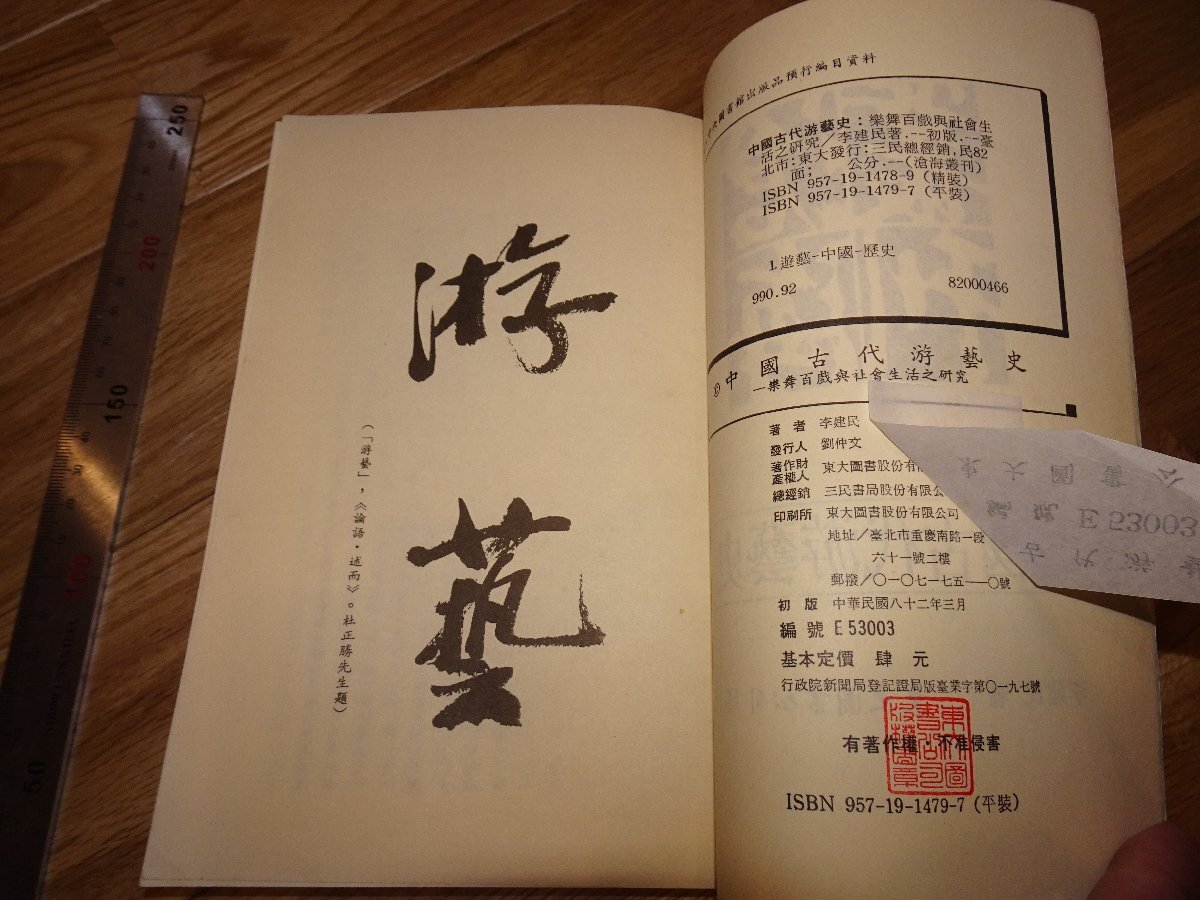 游藝
(「游藝」，《論語・述而》。杜正勝先生題)
中央圖書館出版品預行編目資料
中國古代游藝史：樂舞百戲與社會生
活之研究／李建民著.--初版.--臺
北市：東大發行：三民總經銷，民82
面；　公分.--(滄海叢刊)
ISBN 957-19-1478-9 (精裝)
ISBN 957-19-1479-7 (平裝)
1.遊藝-中國-歷史
990.92　82000466
中國古代游藝史
—樂舞百戲與社會生活之研究
著者　李建民
發行人　劉仲文
著作財產權人　東大圖書股份有
總經銷　三民書局股份有限公
印刷所　東大圖書股份有限公司
地址／臺北市重慶南路一段
六十一號二樓
郵撥／〇一〇七一七五—〇號
初版　中華民國八十二年三月
編號 E 53003
基本定價　肆元
行政院新聞局登記證局版臺業字第〇一九七號
有著作權・不准侵害
ISBN 957-19-1479-7 (平裝)
E 53003
250
200
150
100
50